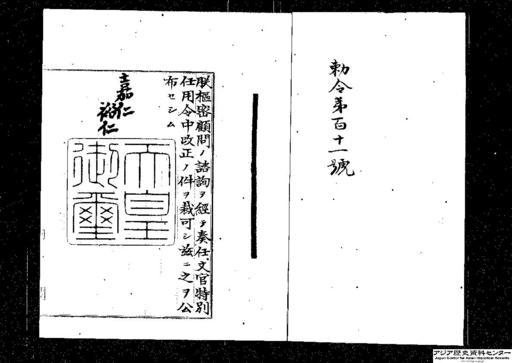 勅令第百十一號
朕樞密顧問ノ諮詢ヲ經テ奏任文官特別
任用令中改正ノ件ヲ裁可シ茲ニ之ヲ公
布セシム
嘉仁
裕仁
天皇
御璽
アジア歴史資料センター
Japan Center for Asian Historical Records